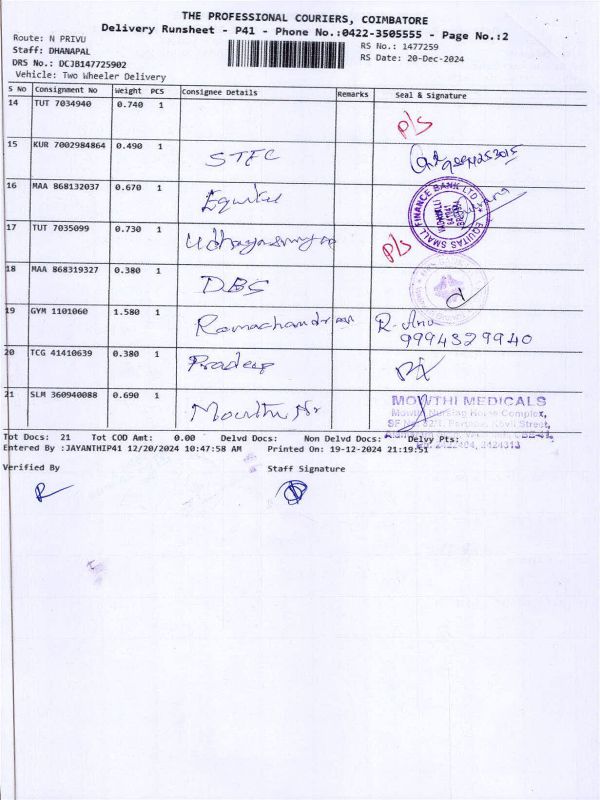 THE PROFESSIONAL COURIERS, COIMBATORE
Delivery Runsheet - P41 - Phone No.:0422-3505555 - Page No.:2
Route: N PRIVU
Staff: DHANAPAL
DRS No.: DCJB147725902
Vehicle: Two Wheeler Delivery
RS No.: 1477259
RS Date: 20-Dec-2024
S No Consignment No Weight PCS Consignee Details Remarks Seal & Signature
14 TUT 7034940 0.740 1 P/S
15 KUR 7002984864 0.490 1 STFC
16 MAA 868132037 0.670 1 EQUITAS SMALL FINANCE BANK LTD
17 TUT 7035099 0.730 1 P/S
18 MAA 868319327 0.380 1 DBS
19 GYM 1101060 1.580 1 Ramachandran R. Anu
9994329940
20 TCG 41410639 0.380 1 Pradeep
21 SLM 360940088 0.690 1 MOWTHI MEDICALS
Mowthi Nursing Home Complex,
Tot Docs: 21 Tot COD Amt: 0.00 Delvd Docs: Non Delvd Docs: Delvy Pts:
Entered By :JAYANTHIP41 12/20/2024 10:47:58 AM Printed On: 19-12-2024 21:19:51
Verified By Staff Signature